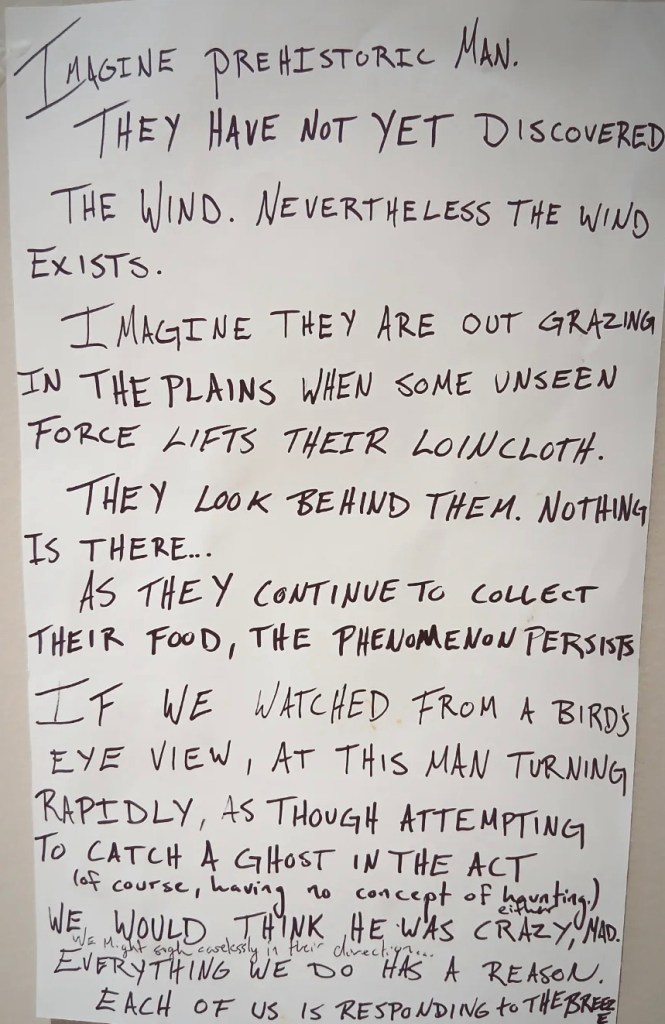 IMAGINE PREHISTORIC MAN.
THEY HAVE NOT YET DISCOVERED
THE WIND. NEVERTHELESS THE WIND
EXISTS.
IMAGINE THEY ARE OUT GRAZING
IN THE PLAINS WHEN SOME UNSEEN
FORCE LIFTS THEIR LOINCLOTH.
THEY LOOK BEHIND THEM. NOTHING
IS THERE...
AS THEY CONTINUE TO COLLECT
THEIR FOOD, THE PHENOMENON PERSISTS
IF WE WATCHED FROM A BIRD'S
EYE VIEW, AT THIS MAN TURNING
RAPIDLY, AS THOUGH ATTEMPTING
TO CATCH A GHOST IN THE ACT
(of course, having no concept of haunting,)
either
WE WOULD THINK HE WAS CRAZY, MAD.
We Might sigh carelessly in their direction...
EVERYTHING WE DO HAS A REASON.
EACH OF US IS RESPONDING to THE BREEZE